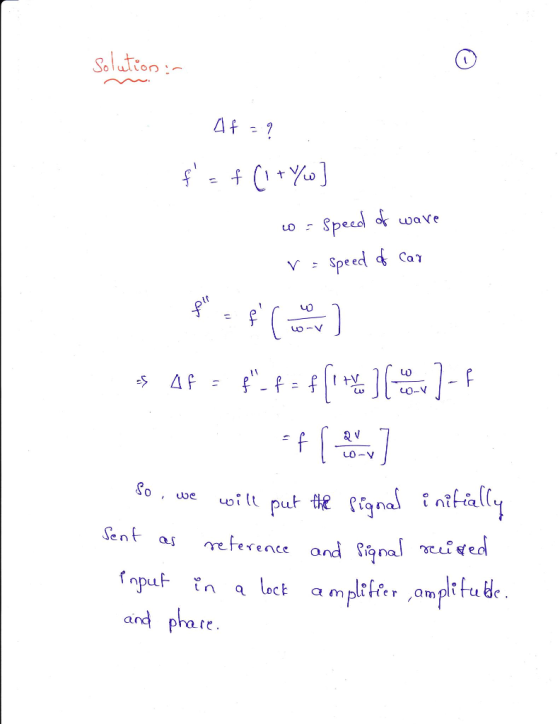 Solution :-
1
Δf = ?
f' = f (1 + v/ω]
ω = Speed of wave
v = Speed of Car
f'' = f' ( ω / ω-v ]
⇒ Δf = f'' - f = f [1 + v/ω] [ ω / ω-v ] - f
= f [ 2v / ω-v ]
So, we will put the signal initially
Sent as reference and signal recieved
input in a lock amplifier, amplitude.
and phare.